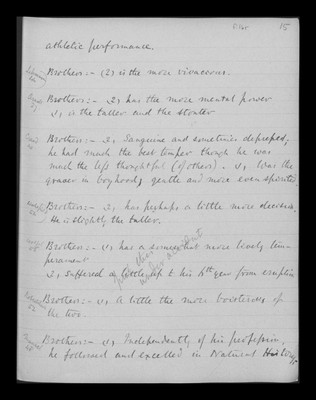 15
athletic performance.
Brothers:- (2) is the more vivacious.
Brothers:- 2, has the more mental power
1, is the taller and the stouter
Brothers:- 2, Sanguine and sometimes depressed,
he had much the best temper though he was
much the less thoughtful (of others). 1, Was the
graver in boyhood, gentle and more even spirited
Brothers:- 2, has perhaps a little more decision.
He is slightly the taller.
Brothers:- 1, has a somewhat more lively tem-
perament
2, suffered a little up to his 4th year from eruption
Brothers:- 1, A little the more boisterous of
the two.
Brothers:- 1, Independently of his profession,
he followed and excelled in Natural